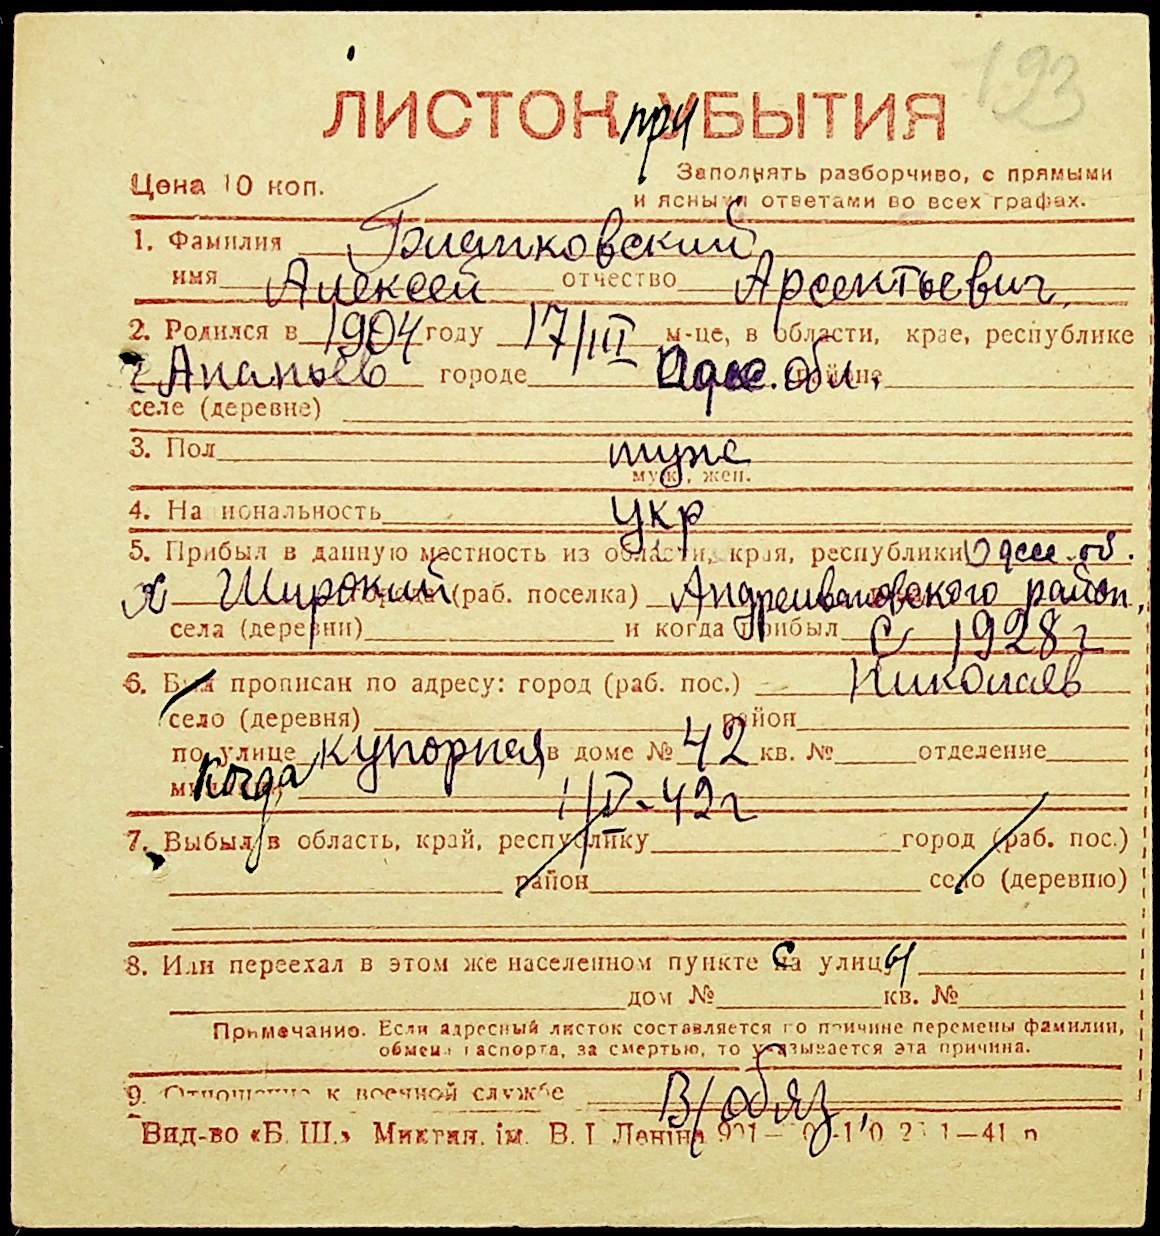 193
ЛИСТОК при УБЫТИЯ
Цена 10 коп.
Заполнять разборчиво, с прямыми
и ясными ответами во всех графах.
1. Фамилия
имя Алексей отчество Арсентьевич
2. Родился в 1904 году 17/III м-це, в области, крае, республике
г Ананьев городе Одес. обл. районе
селе (деревне)
3. Пол муж
муж., жен.
4. Национальность укр
5. Прибыл в данную местность из области, края, республики Одесс. об.
х Широкий города (раб. поселка) Андреивановского район,
села (деревни) и когда прибыл с 1928 г
6. Был прописан по адресу: город (раб. пос.) Николаев
село (деревня) район
по улице купорная в доме № 42 кв. № отделение
милиции когда 1/IV-42 г
7. Выбыл в область, край, республику город (раб. пос.)
район село (деревню)
8. Или переехал в этом же населенном пункте с на улицы
дом № кв. №
Примечание. Если адресный листок составляется по причине перемены фамилии,
обмена паспорта, за смертью, то указывается эта причина.
9. Отношение к военной службе В/обяз,
Вид-во «Б. Ш.» Микгин. ім. В. І Леніна